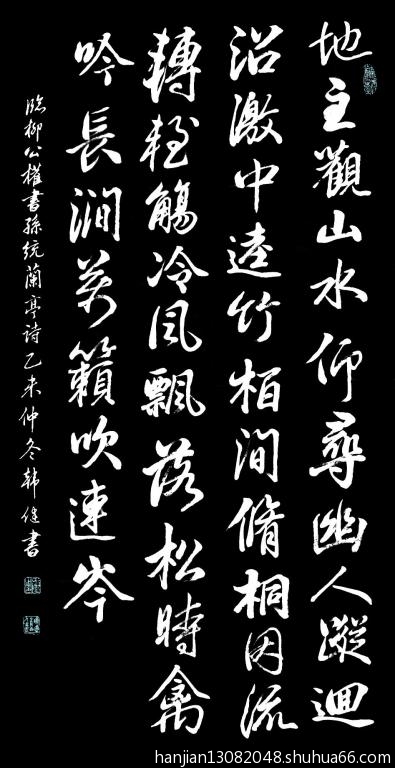 地主觀山水仰尋幽人蹤迴
沼激中逵竹栢間脩桐因流
轉輕觴冷風飄落松時禽
吟長澗萬籟吹連岑
臨柳公權書孫統蘭亭詩乙未仲冬韩健書
hanjian13082048.shuhua66.com